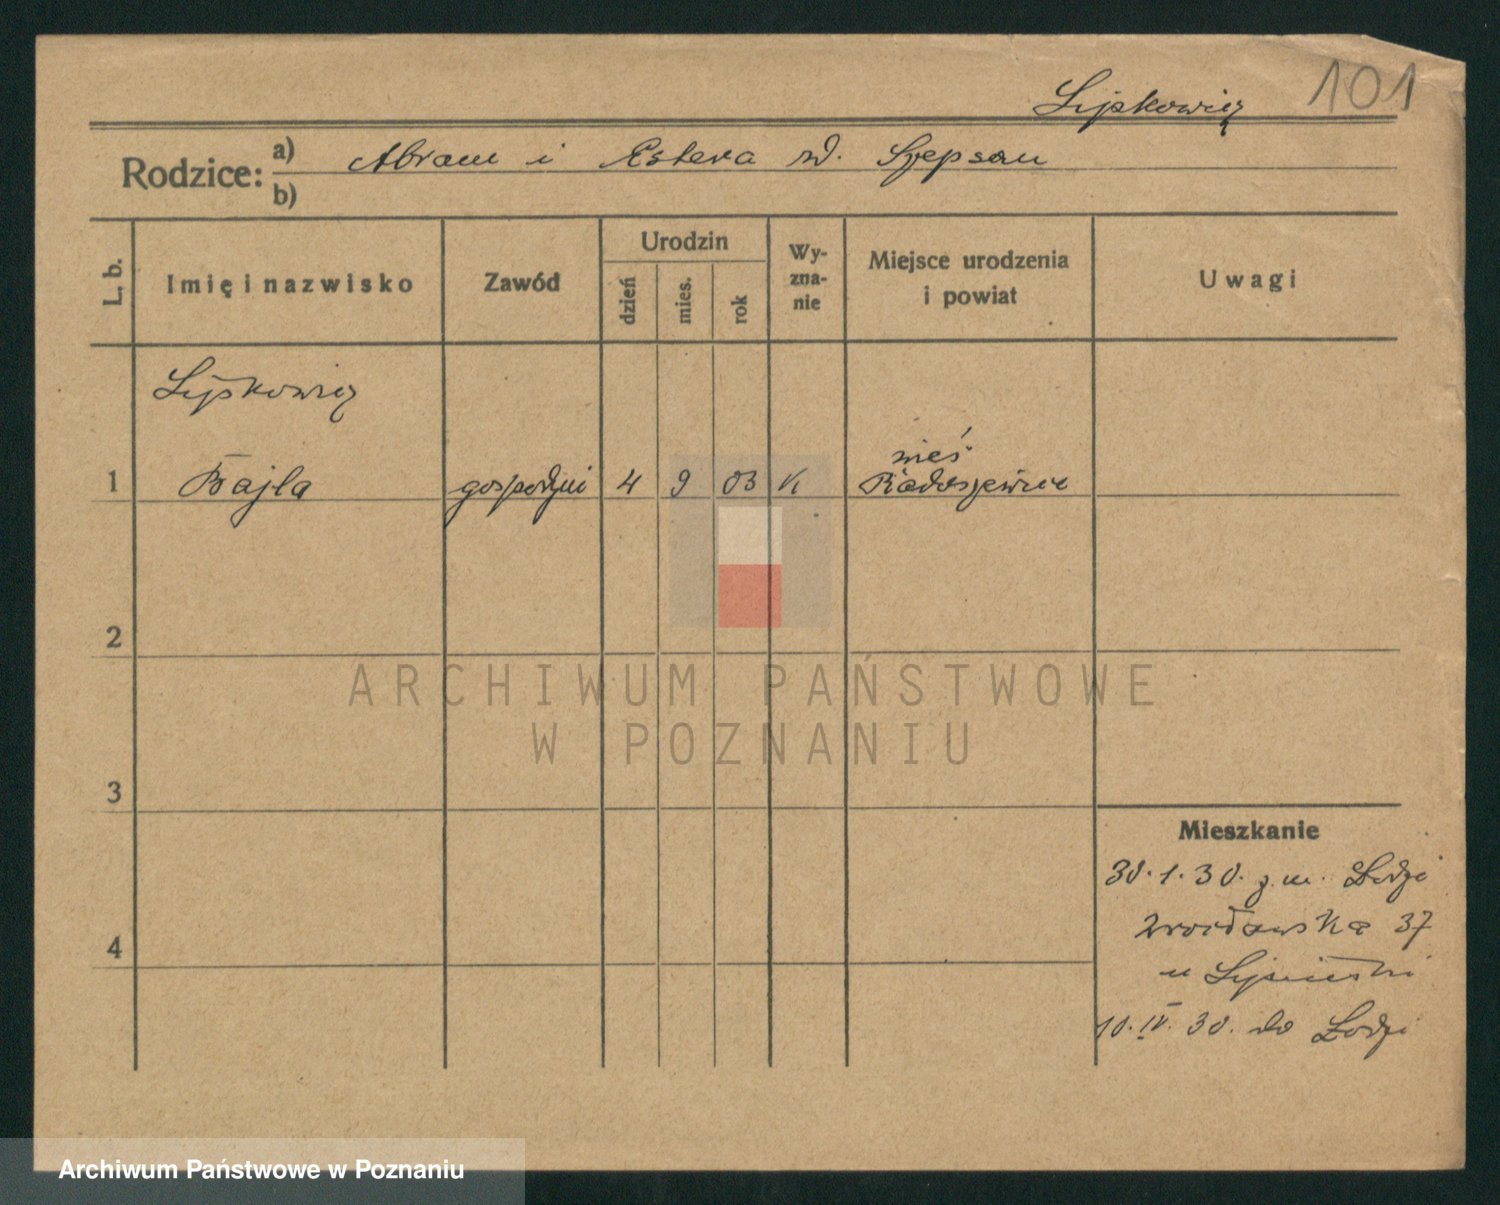 101
Lipkowicz
Rodzice: a) Abram i Estera zd. Szepsau
b)
L. b.
Imię i nazwisko
Zawód
Urodzin
dzień
mies.
rok
Wy-
zna-
nie
Miejsce urodzenia
i powiat
Uwagi
Lipkowicz
1 Bajla gospodyni 4 9 03
wieś
Radoszewice
2
ARCHIWUM PAŃSTWOWE
W POZNANIU
3
Mieszkanie
30.1.30. z m. Łodzi
4 Wrocławska 37
u
10.IV.30. do Łodzi
Archiwum Państwowe w Poznaniu